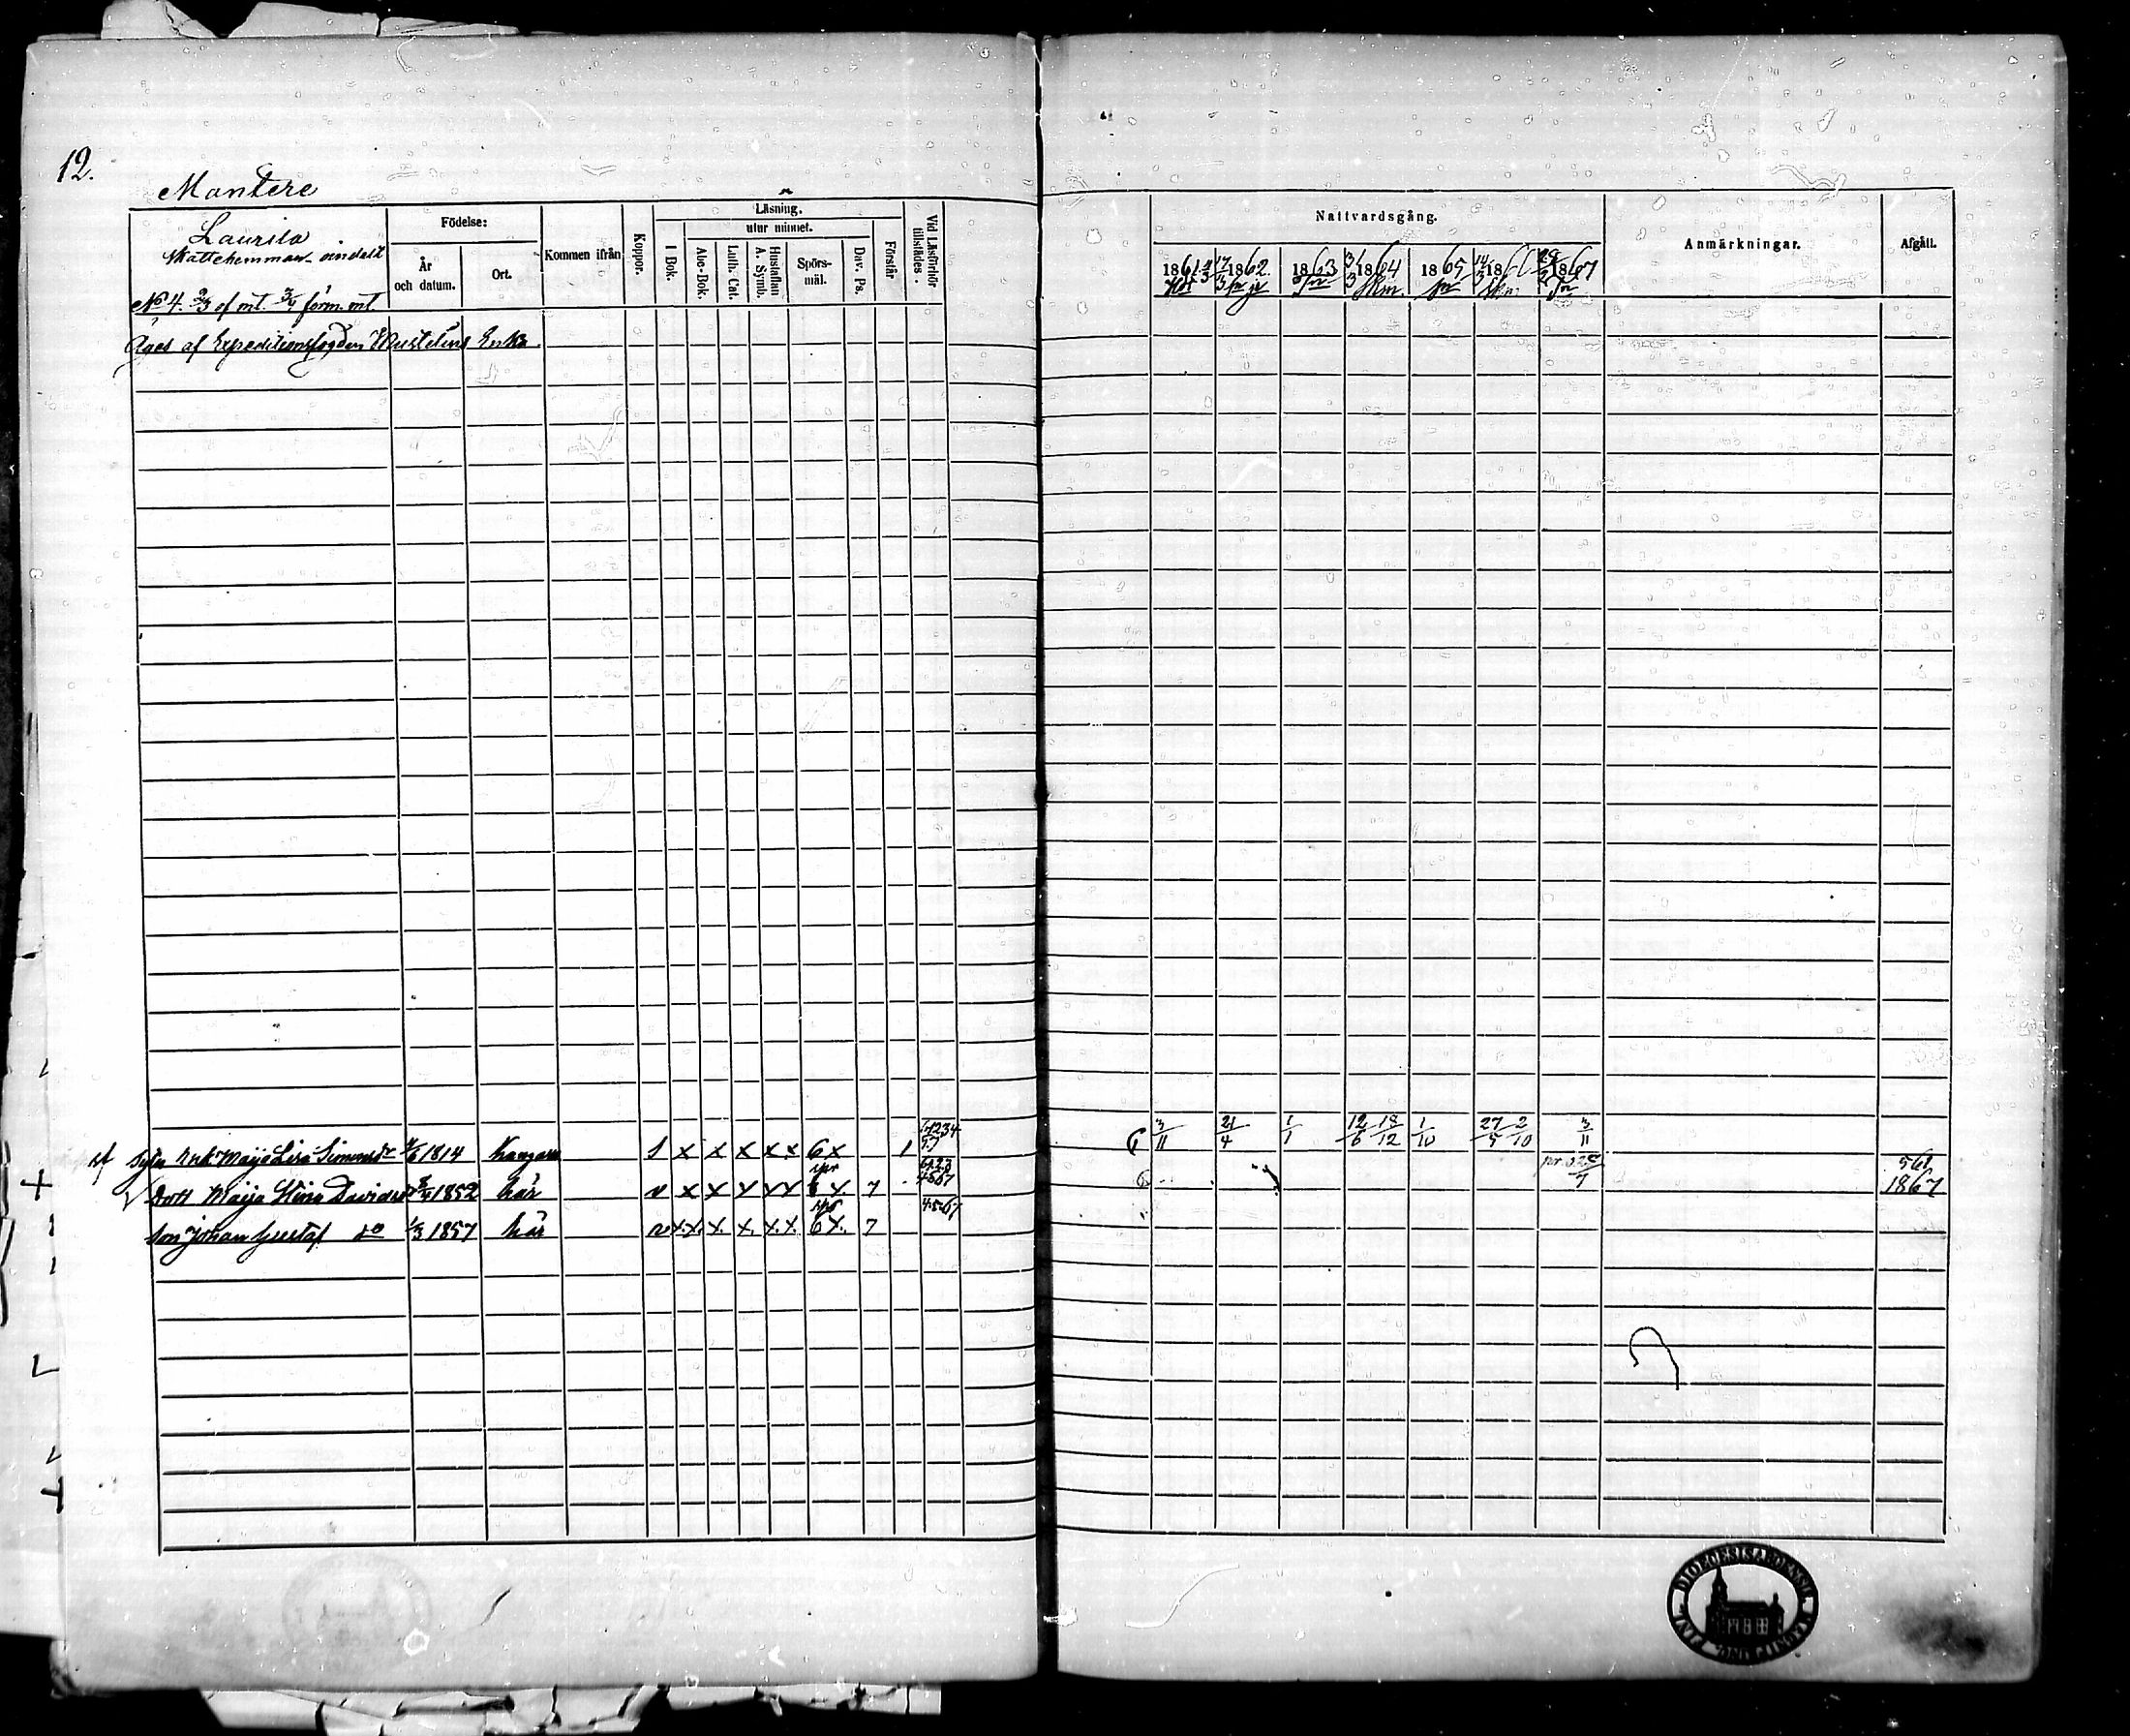 12.
Mantere
Laurila
Skattehemman oindelt
No 4. 2/3 of mt. 3/4 förm. mt.
Födelse:
År och datum.
Ort.
Kommen ifrån
Koppor.
Läsning,
utur minnet.
I Bok.
Abc-Bok.
Luth. Cat.
A. Symb. Hustaflan
Spörsmål.
Dav. Ps.
Förstår.
Vid Läsförhör tillstädes.
Nattvardsgång.
1861 1862. 1863 1864 1865 186 1867
Anmärkningar.
Afgått.
Äges af Expeditionsfogden Enka
Enk. Maija Lisa Simonsdr 1814 Kangas 1 x x x x x 6 x 1 3/11 21/4 1/1 12/6 18/12 1/10 27/5 2/10 3/11
Dott Maija Stina Davidsd 1852 här v x x x x x x 7 1867
Son Johan Gustaf do 1/3 1857 här v x x x x x x 6 x 7
DIOECESIS ABOENSIS